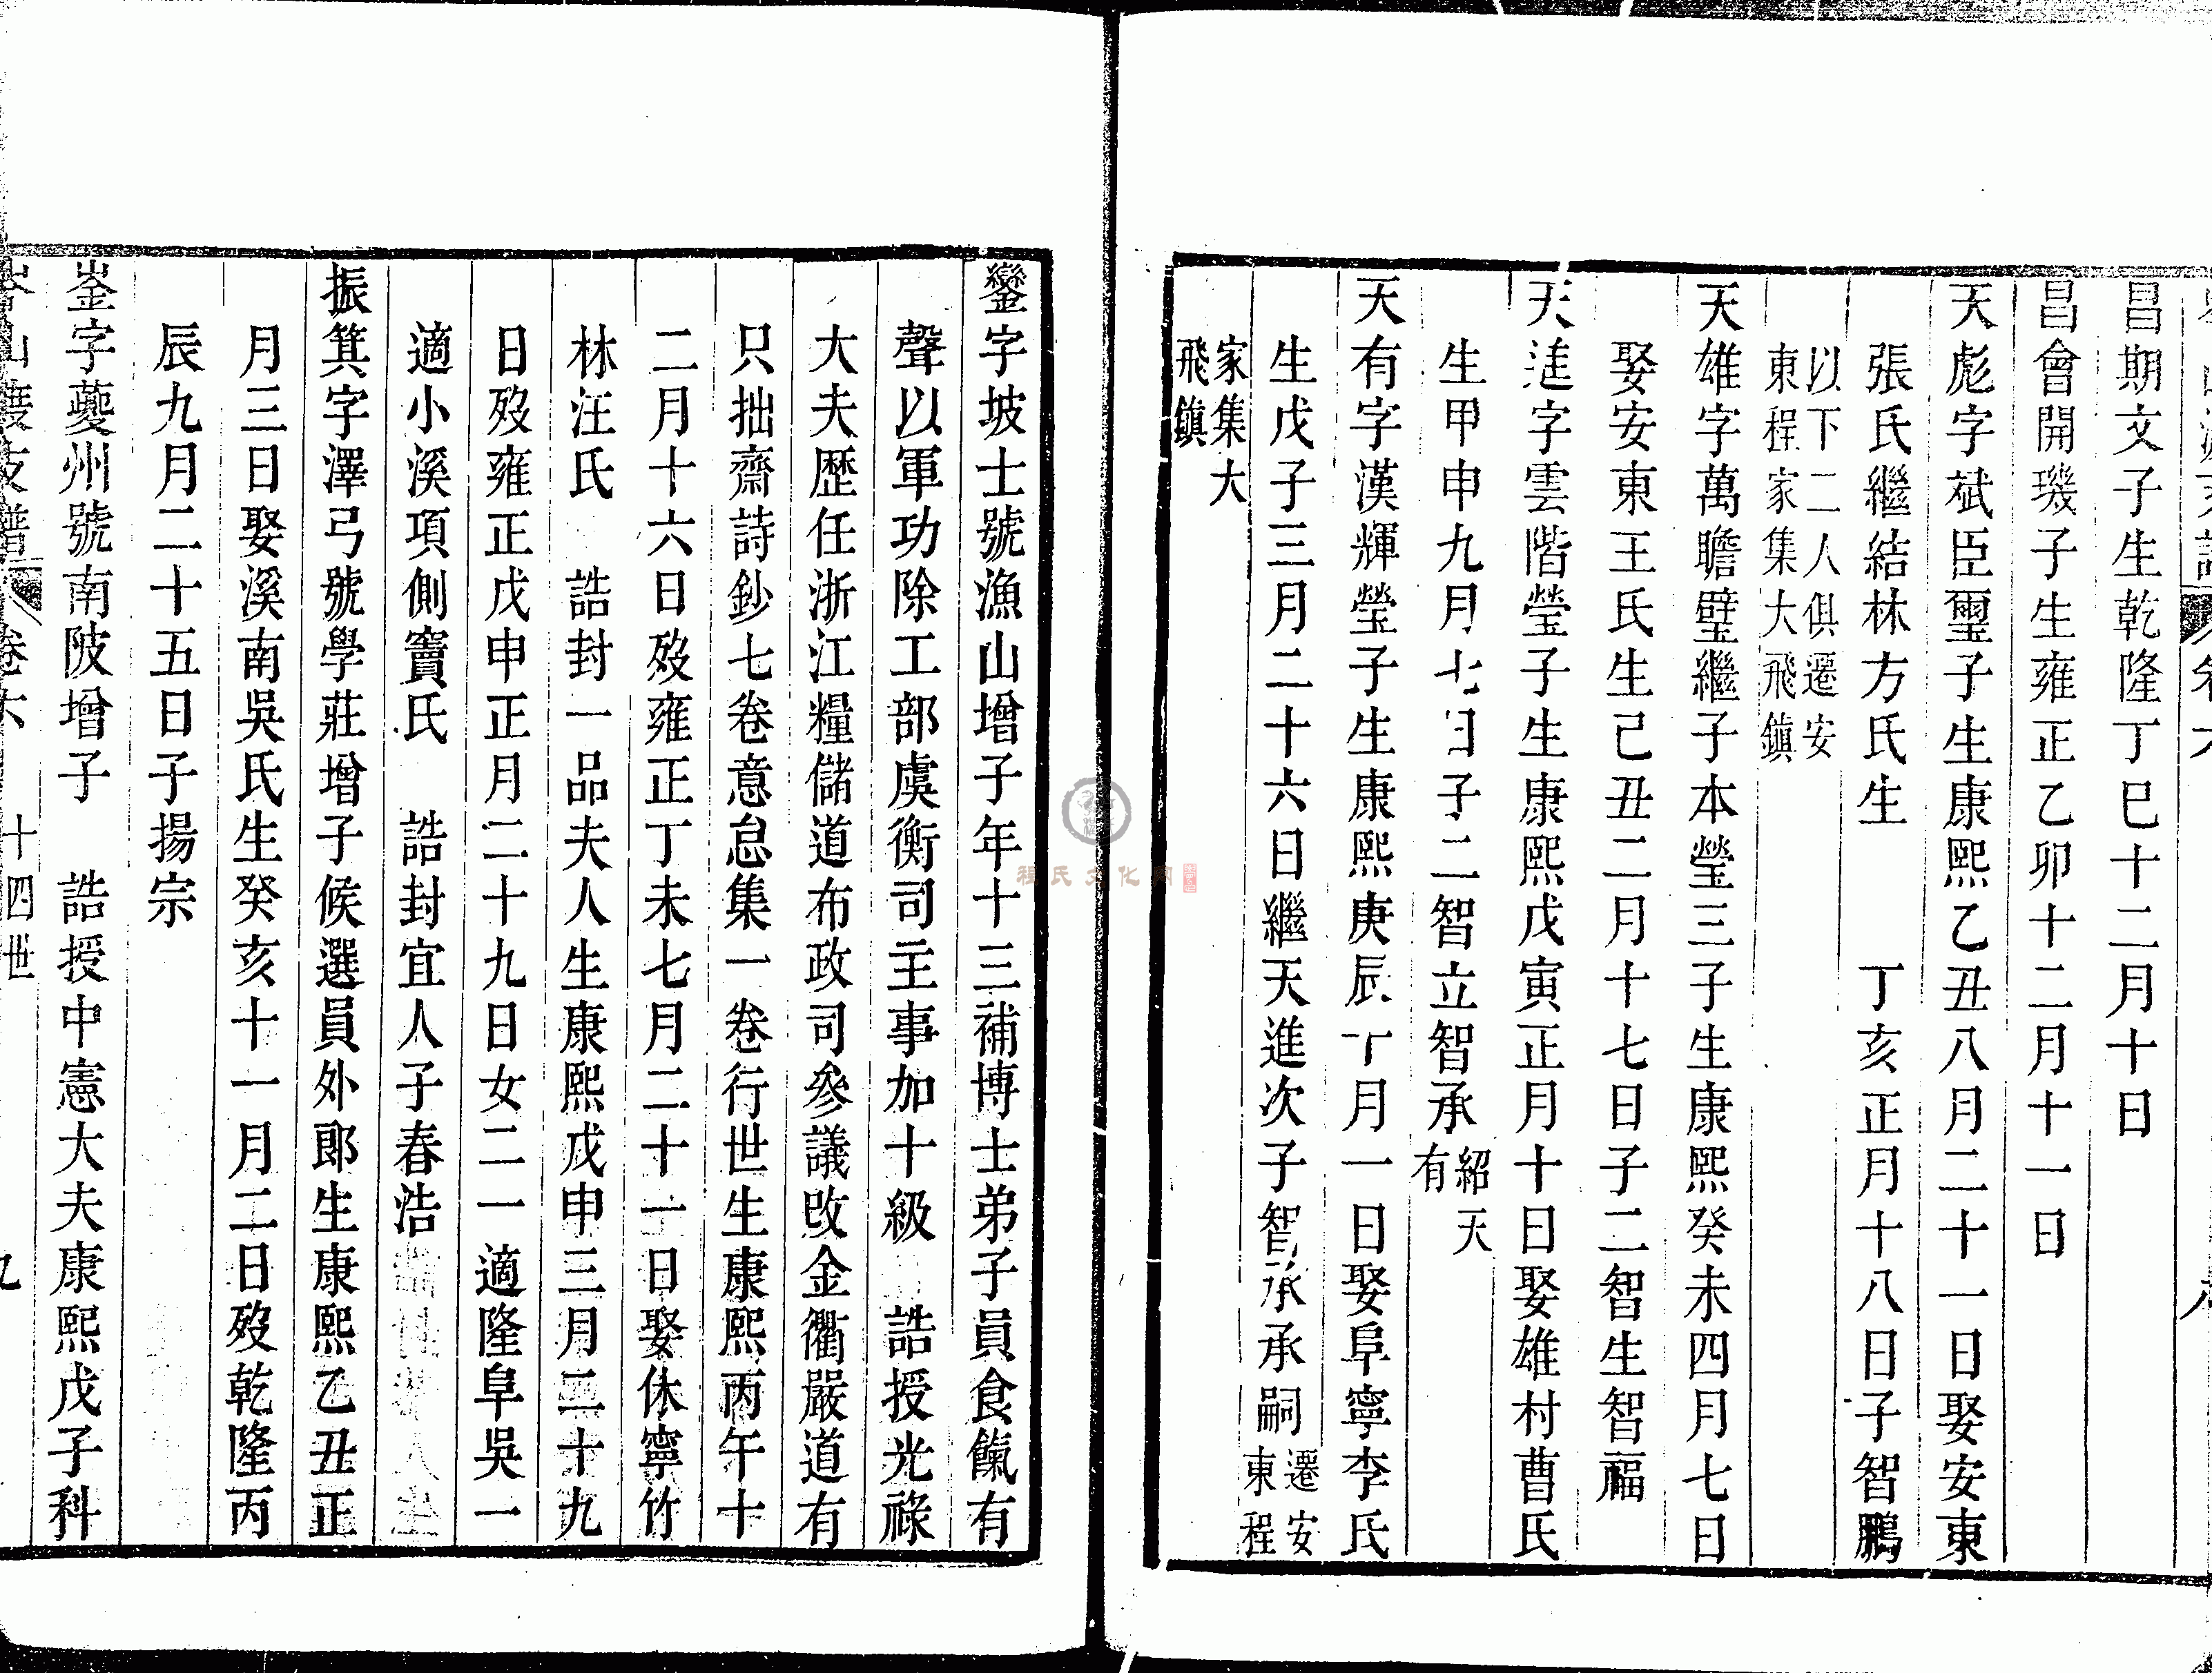 昌期文子生乾隆丁巳十二月十日
昌會開璣子生雍正乙卯十二月十一日
天彪字斌臣璽子生康熙乙丑八月二十一日娶安東
張氏繼結林方氏生 丁亥正月十八日子智鵬
以下二人俱遷安
東程家集大飛鎮
天雄字萬瞻璧繼子本瑩三子生康熙癸未四月七日
娶安東王氏生己丑二月十七日子二智生智福
天進字雲階瑩子生康熙戊寅正月十日娶雄村曹氏
生甲申九月七日子二智立智承紹天有
天有字漢輝瑩子生康熙庚辰十月一日娶阜寧李氏
生戊子三月二十六日繼天進次子智承承嗣遷安東程
家集大
飛鎮
鑾字坡士號漁山增子年十三補博士弟子員食餼有
聲以軍功除工部虞衡司主事加十級 誥授光祿
大夫歷任浙江糧儲道布政司參議改金衢嚴道有
只拙齋詩鈔七卷意怠集一卷行世生康熙丙午十
二月十六日歿雍正丁未七月二十一日娶休寧竹
林汪氏 誥封一品夫人生康熙戊申三月二十九
日歿雍正戊申正月二十九日女二一適隆阜吳一
適小溪項側竇氏 誥封宜人子春浩
振箕字澤弓號學莊增子候選員外郎生康熙乙丑正
月三日娶溪南吳氏生癸亥十一月二日歿乾隆丙
辰九月二十五日子揚宗
崟字蘷州號南陂增子 誥授中憲大夫康熙戊子科
卷六 十四世 九
程氏文化网